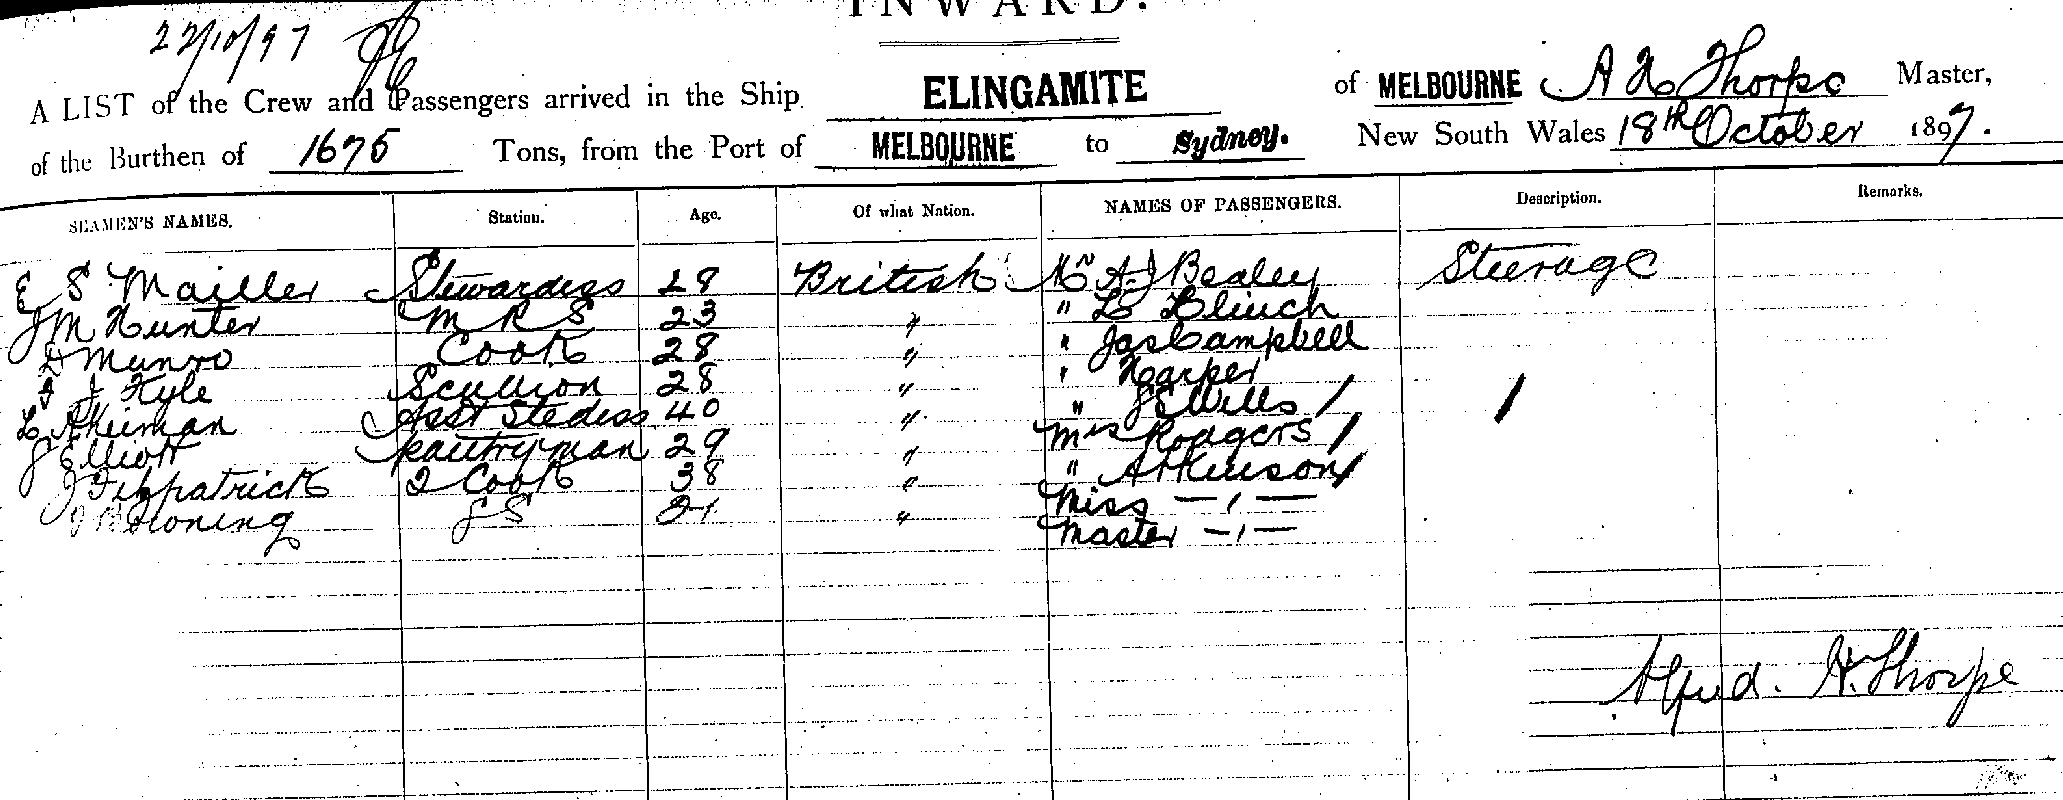 INWARD.
22/10/97
A LIST of the Crew and Passengers arrived in the Ship ELINGAMITE of MELBOURNE A H Thorpe Master,
of the Burthen of 1675 Tons, from the Port of MELBOURNE to Sydney. New South Wales 18th October 1897.
SEAMEN'S NAMES. Station. Age. Of what Nation. NAMES OF PASSENGERS. Description. Remarks.
E S Mailler Stewardess 28 British Mr A J Bealey Steerage
J M Hunter M R S 23 " " L Blinch
D Munro Cook 28 " " Jas Campbell
J Kyle Scullion 28 " " Harper
L Asst Stedess 40 " " Wills /  /
J Elliott Pantryman 29 " Mrs Rodgers /
J Fitzpatrick 2 Cook 38 " " Atkinson /
Honing " Miss — " —
Master — " —
Alfred. H. Thorpe